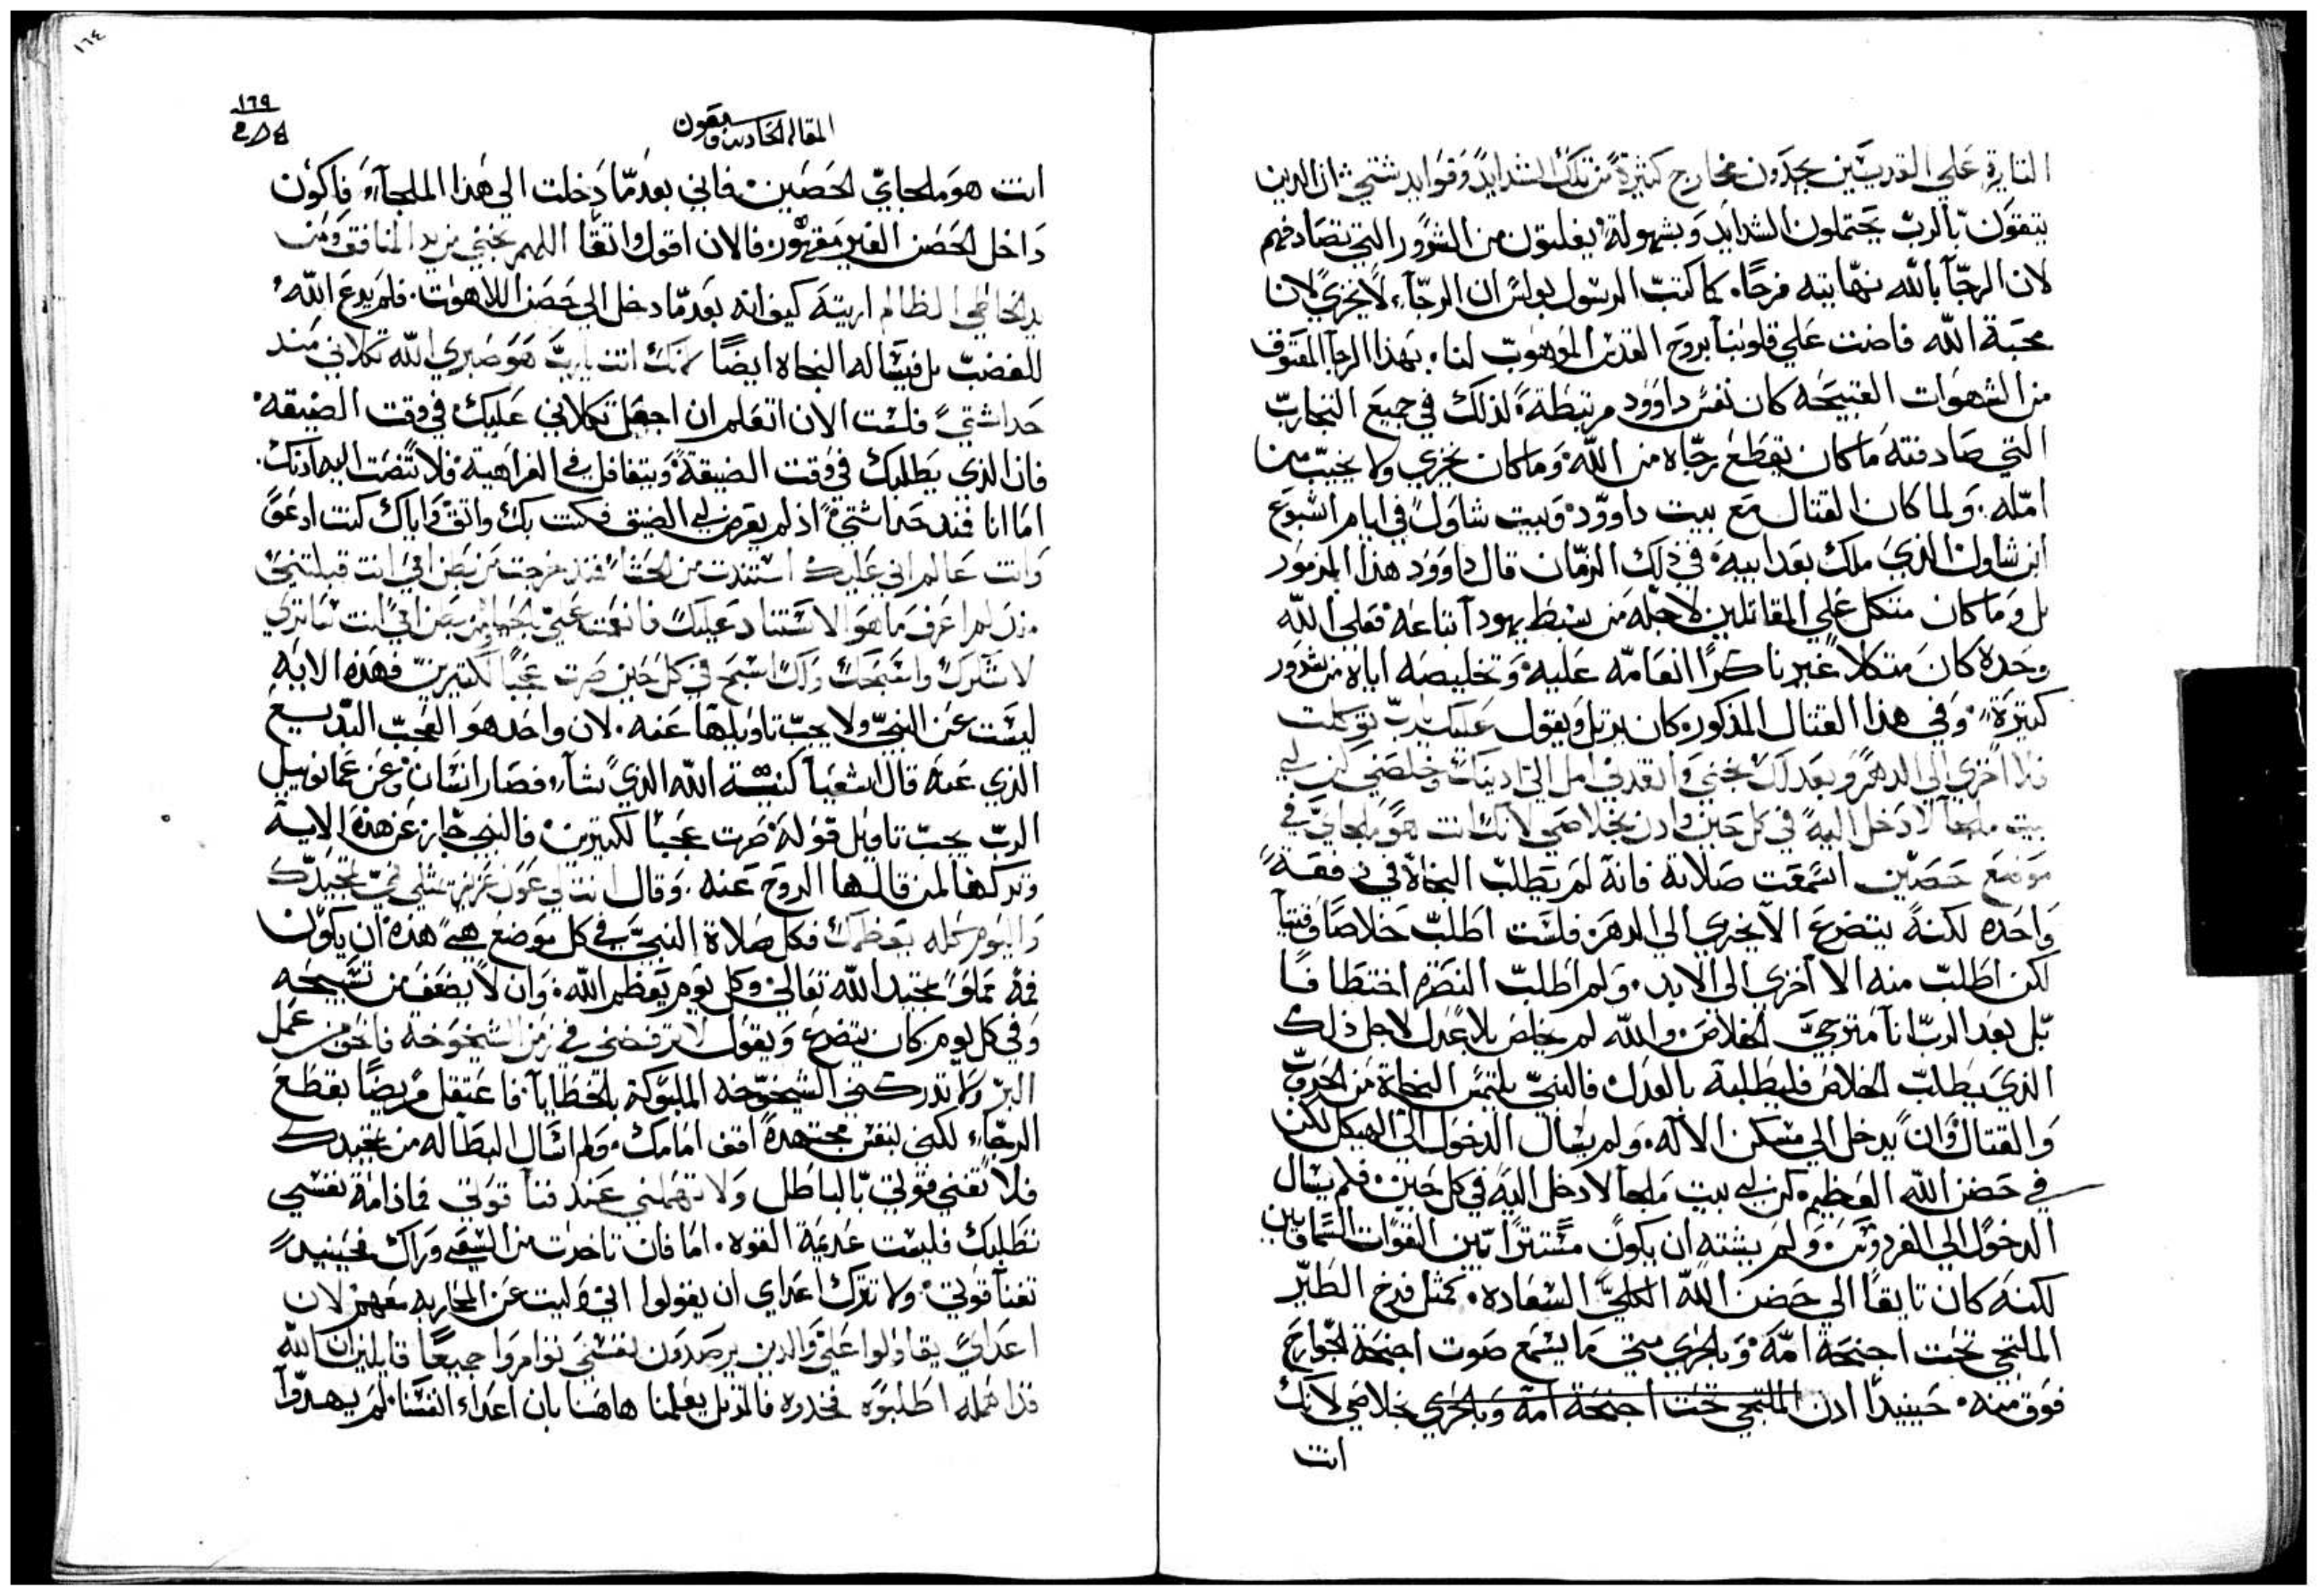 القارية علي القديسين يجدون مخارج كثيرة من تلك الشدايد وفوايد شتي ان الدين
يتقون بالرب يحتملون الشدايد وبسهولة يغلبون من الشرور التي تصادفهم
لان الرجا بالله نهايته فرحا. كما كتب الرسول بولس ان الرجاء لا يخزي لان
محبة الله فاضت علي قلوبنا بروح القدس الموهوب لنا. بهذا الرجا المعتوق
من الشهوات القبيحه كان نفس داوود مرتبطة لذلك في جميع التجارب
التي صادفته ما كان يقطع رجاه من الله وما كان يخزي ولا يخيب من
امله. ولما كان القتال مع بيت داوود وبيت شاول في ايام اشبوع
ابن شاول الذي ملك بعد ابيه في ذلك الزمان قال داوود هذا المزمور
بل وما كان متكل علي المقاتلين لاجله من سبط يهودا اتباعه فعلي الله
وحده كان متكلا غير ناكرا انعامه عليه وتخليصه اياه من شرور
كثيرة. وفي هذا القتال المذكور كان يرتل ويقول عليك يارب توكلت
فلا اخزي الي الدهر وبعدلك نجني وانقدني امل الي ادنيك وخلصني كن لي
بيت ملجا لادخل اليه في كل حين وادن بخلاصي لانك انت هو ملجاي في
موضع حصين اسمعت صلاته فانه لم يطلب النجاة في دفقة
واحده لكنه يتضرع الا يخزي الي الدهر فلست اطلب خلاصا وقتيا
لكن اطلب منه الا اخزي الي الابد. ولم اطلب النصره اختطافا
بل بعد الرب انا مترجي الخلاص والله لم يخلص بلا عدل لاجل ذلك
الذي يطلب الخلاص فليطلبه بالعدل فالنبي يلتمس النجاة من الحروب
والقتال وان يدخل الي مسكن الاله ولم يسال الدخول الي الهيكل لكن
في حضن الله العظيم كن لي بيت ملجا لادخل اليه في كل حين فلم يسال
الدخول الي الفردوس ولم يشته ان يكون مستترا بين القوات السماويين
لكنه كان تايقا الي حضن الله الكلي السعاده. كمثل فرخ الطير
الملتجي تحت اجنحة امه وبالحري متي ما يسمع صوت اجنحة الجوارح
فوق منه. حينيدا ادن الملتجي تحت اجنحة امه وبالحري بخلاصي لانك
انت
١٦٤
١٦٩
المقاله الحاديه وستون
انت هو ملجاي الحصين فاني بعدما دخلت الي هذا الملجاء فاكون
داخل الحصن الغير مقهور فالان اقول واتقا اللهم نجني من يد المنافق ومن
يد الخاطي الظالم اريته كيف انه بعدما دخل الي حصن اللاهوت. فلم يدع الله
للغضب بل فيساله النجاه ايضا لانك انت يارب هو صبري الله تكلاني مند
حداثتي فلست الان اتعلم ان اجعل تكلاني عليك في وقت الضيقه
فان الذي يطلبك في وقت الضيقة ويتغافل في الفراهية فلا تنصت اليه ادنك.
اما انا فند حداثتي اذ لم يعرض لي الضيق فكنت بك واتق واياك كنت ادعو
وانت عالم اني عليك استندت من الحشا فند خرجت من بطن امي انت قبلتني
لم اعرف ما هو الاستناد عليك من بطن امي انت
لا وامجدك في كل حين صرت عجبا لكتيرين فهذه الايه
ليست عن النبي ولا يجب تاويلها عنه. لان واحد هو العجب البديع
الذي عنه قال اشعيا الله الذي نشاء فصار انسان وعن عمانوييل
الرب يجب تاويل قوله صرت عجبا لكتيرين فالنبي جاز عن هذه الاية
وتركها لمن قالها الروح عنه. وقال انت لي عون عزيز يمتلي في تمجيدك
واليوم كله بعظمتك فكل صلاة النبي في كل موضع هي هذه ان يكون
فمه مملوا تمجيد الله تعالي وكل يوم يعظم الله وان لا يضعف من تسبيحه
وفي كل يوم كان يتضرع ويقول لا ترفضني في زمن الشيخوخه من عمل
البر ولا تدركني الشيخوخه المملوكة بالخطايا فاعتقل مريضا بقطع
الرجاء لكني بنفس مجتهدة اقف امامك ولم اسال البطاله من تمجيدك
فلا تفني قوتي بالباطل ولا تهملني عند فنا قوتي فما دامة نفسي
تطلبك فليست عديمة القوه. اما فان تاخرت من السعي وراك فحينيد
تفنا قوتي ولا تترك اعداي ان يقولوا اني وليت عن المحاربه معهم لان
اعداي تقاولوا علي والدين يرصدون نفسي توامروا جميعا قايلين ان الله
قد اهمله اطلبوه فالمرتل يعلمنا هاهنا بان اعداء انفسنا لم يهدوا